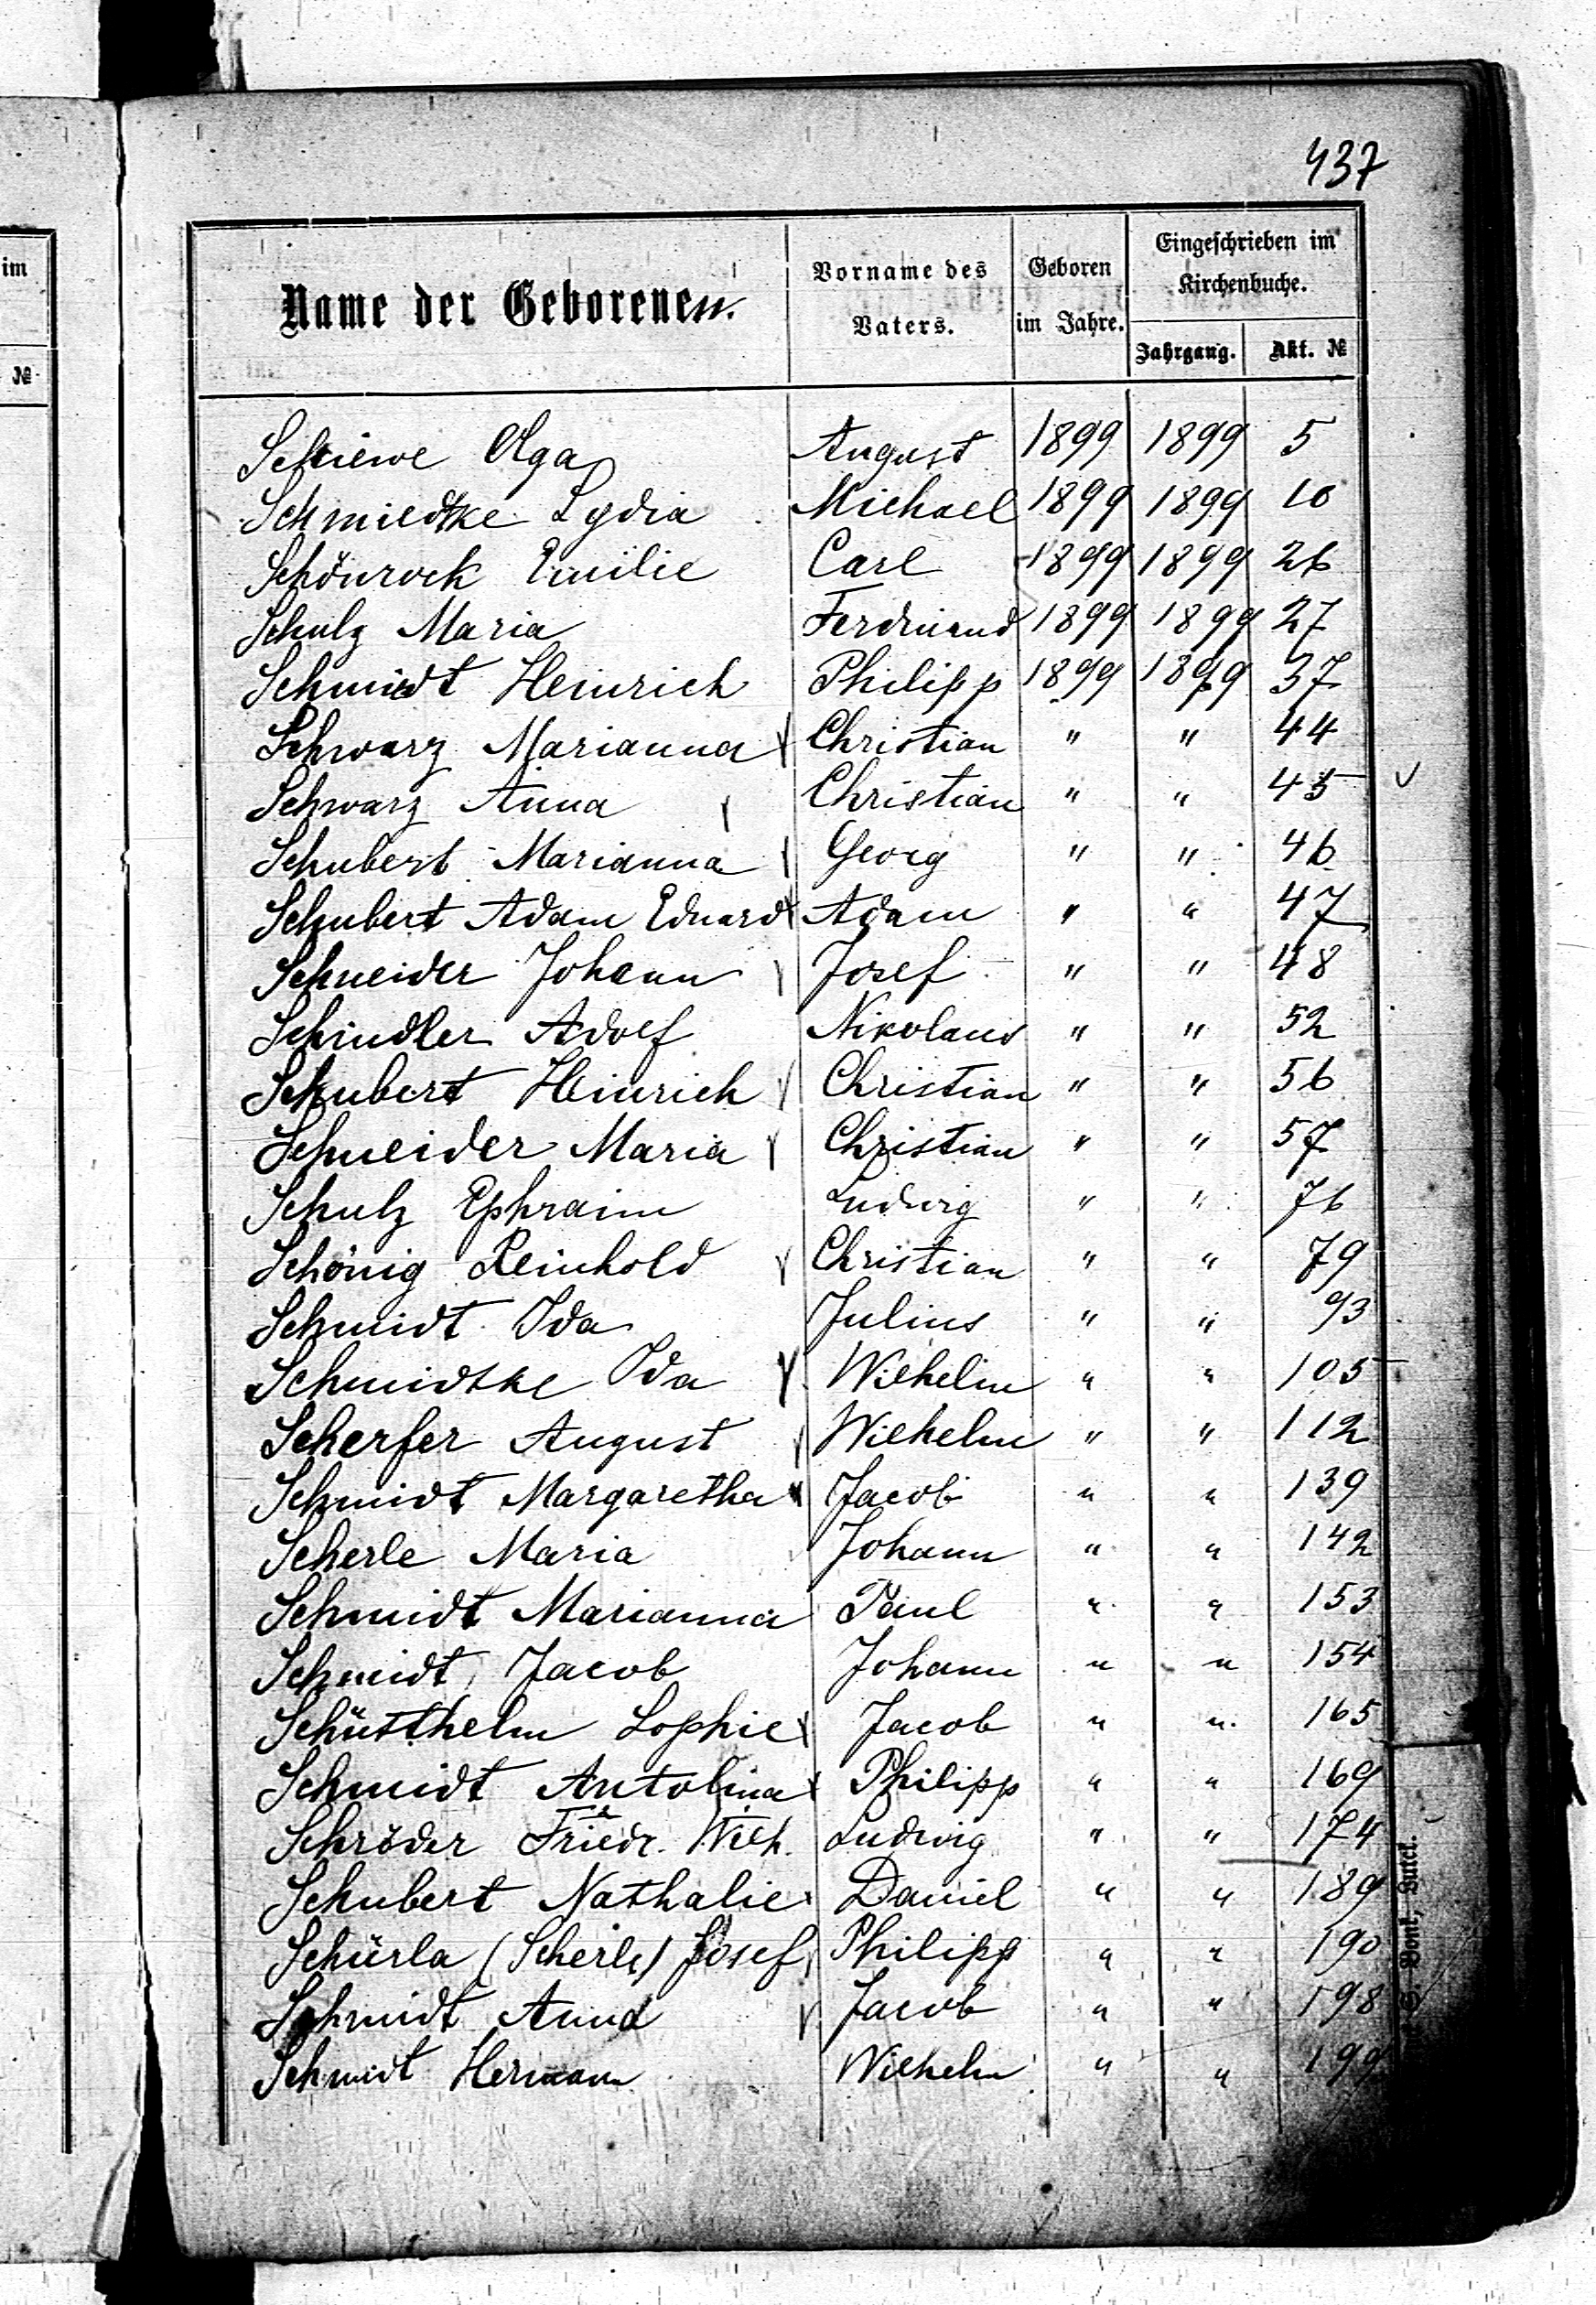 437
im
№
Name der Geborenen.
Vorname des Vaters.
Geboren im Jahre.
Eingeschrieben im Kirchenbuche.
Jahrgang.
Akt. №
Schiewe Olga August 1899 1899 5
Schmiedtke Lydia Michael 1899 1899 10
Schönrock Emilie Carl 1899 1899 26
Schulz Maria Ferdinand 1899 1899 27
Schmidt Heinrich Philipp 1899 1899 37
Schwarz Marianna Christian " " 44
Schwarz Anna Christian " " 45
Schubert Marianna Georg " " 46
Schubert Adam Eduard Adam " " 47
Schneider Johann Josef " " 48
Schindler Adolf Nikolaus " " 52
Schubert Heinrich Christian " " 56
Schneider Maria Christian " " 57
Schulz Ephraim Ludwig " " 76
Schönig Reinhold Christian " " 79
Schmidt Ida Julius " " 93
Schmidtke Ida Wilhelm " " 105
Scherfer August Wilhelm " " 112
Schmidt Margaretha Jacob " " 139
Scherle Maria Johann " " 142
Schmidt Marianna Paul " " 153
Schmidt, Jacob Johann " " 154
Schütthelm Sophie Jacob " " 165
Schmidt Antolina Philipp " " 169
Schröder Friedr. Wilh. Ludwig " " 174
Schubert Nathalie Daniel " " 189
Schürla (Scherle) Josef Philipp " " 190
Schmidt Anna Jacob " " 198
Schmidt Hermann Wilhelm " " 199